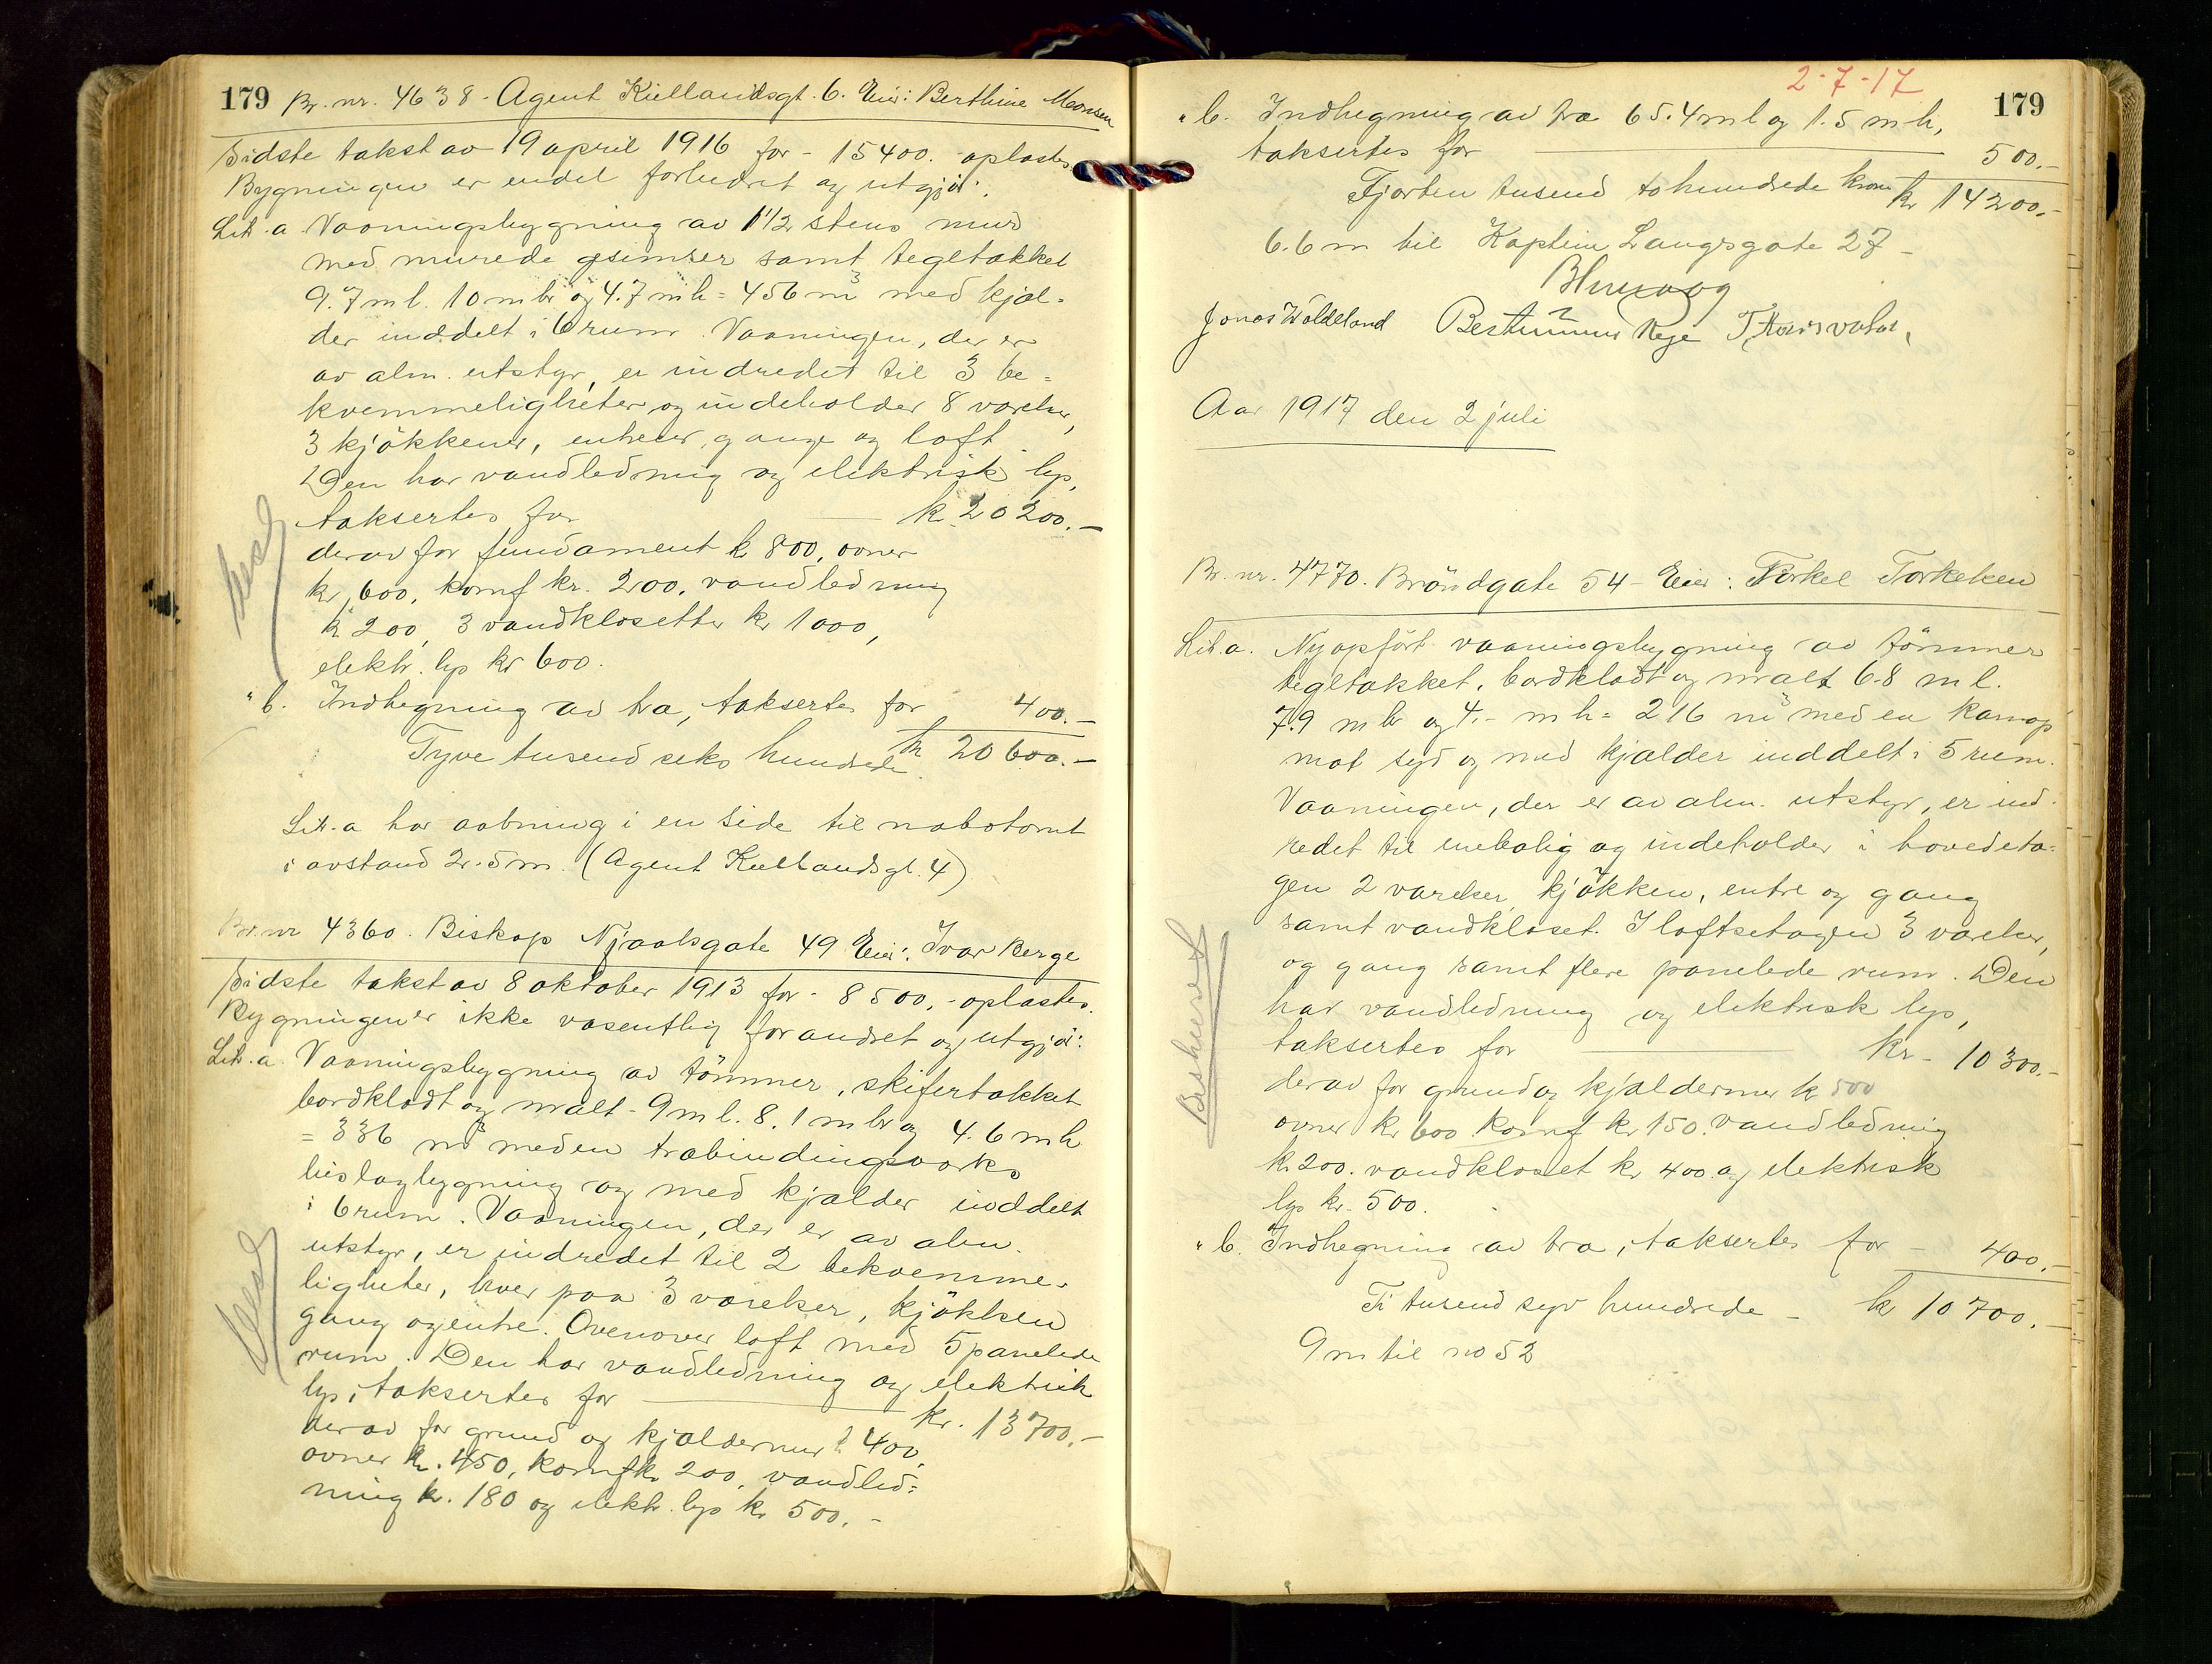 179 Br. nr. 4638 - Agent Kiellandsgt. 6. Eier: Berthine Monsen
Sidste takst av 19 april 1916 for - 15400. - oplastes
Bygningen er endel forbedret og utgjør:
Litr. a Vaaningsbygning av 1 1/2 stens mur
med murede gsimser samt tegltækket
9.7 m l. 10 m br og 4.7 m h = 456 m³ med kjæl-
der inddelt i 6 rum. Vaaningen, der er
av alm. utstyr, er indredet til 3 be-
kvemmeligheter og indeholder 8 værelser,
3 kjøkkener, entreer, gange og loft.
Den har vandledning og elektrisk lys,
takseres for kr 20200.-
derav for fundament kr 800, ovner
kr 600, komf kr. 200, vandledning
kr 200, 3 vandklosetter kr 1000,
elektr. lys kr 600.
" b. Indhegning av træ, takseres for 400.-
Tyve tusend seks hundrede kr 20600.-
Litr. a har aabning i en side til nabotomt
i avstand 2.5 m. (Agent Kiellandsgt. 4)
Br. nr 4360. Biskop Njaalsgate 49 Eier: Ivar Berge
Sidste takst av 8 oktober 1913 for - 8500.- oplastes.
Bygningen er ikke væsentlig forandret og utgjør:
Litr. a Vaaningsbygning av tømmer, skifertækket
bordklædt og malt - 9 m l. 8.1 m br og 4.6 m h
= 336 m³ med en træbindingsverks
bislagbygning og med kjælder inddelt
i 6 rum. Vaaningen, der er av alm.
utstyr, er indredet til 2 bekvemme-
ligheter, hver paa 3 værelser, kjøkken
gang og entre. Ovenover loft med 5 panelede
rum. Den har vandledning og elektrisk
lys, takseres for kr. 13700.-
derav for grund og kjældermur kr 400,
ovner kr. 450, komf kr 200, vandled-
ning kr. 180 og elektr. lys kr 500.-
2-7-17
179
" b. Indhegning av træ 65.4 m l og 1.5 m h,
takseres for 500.-
Fjorten tusend to hundrede kron kr 14200.-
6.6 m til Kaptein Langesgate 27 -
Jonas Woldeland
Aar 1917 den 2 juli
Br. nr. 4770. Brøndgate 54 - Eier: Torkel Torkelsen
Litr. a. Nyopført vaaningsbygning av tømmer
tegltækket, bordklædt og malt 6.8 m l.
7.9 m br og 4.- m h = 216 m³ med en karnap
mot syd og med kjælder inddelt i 5 rum.
Vaaningen, der er av alm. utstyr, er ind-
redet til enebolig og indeholder i hovedeta-
gen 2 værelser, kjøkken, entre og gang
samt vandkloset. I loftsetagen 3 værelser,
og gang samt flere panelede rum. Den
har vandledning og elektrisk lys,
takseres for kr. 10300.-
derav for grund og kjældermur kr 500
ovner kr 600 komf kr 150. vandledning
kr. 200. vandkloset kr 400. og elektrisk
lys kr. 500.
" b. Indhegning av træ, takseres for - 400.-
Ti tusend syv hundrede - kr 10700.-
9 m til no 52
Beskrevet